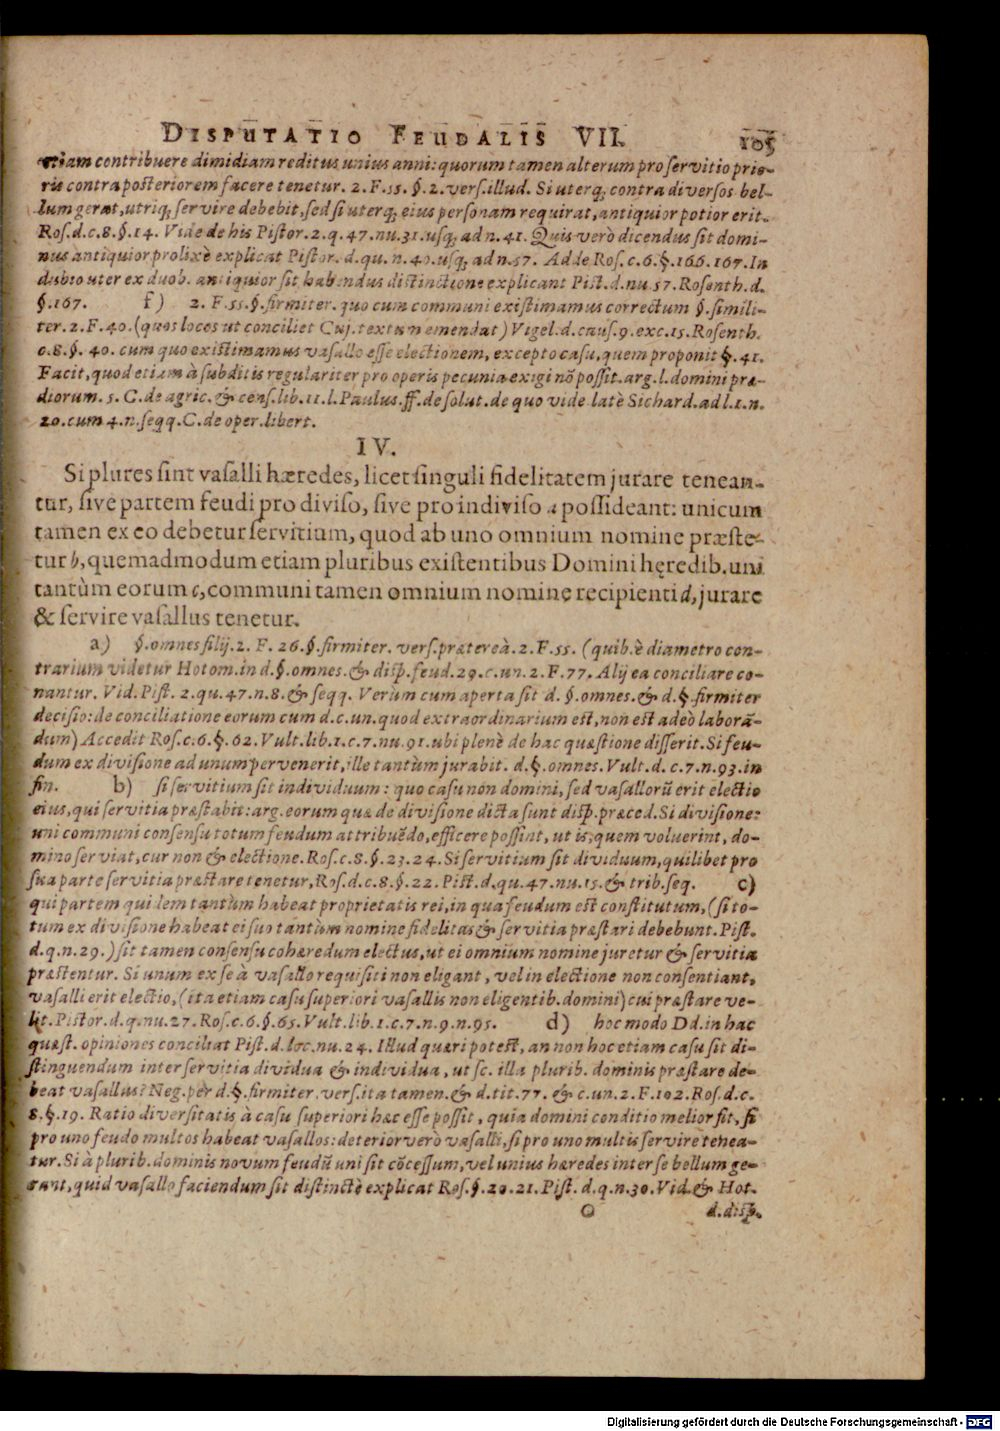 DISPUTATIO FEUDALIS VII. 105
etiam contribuere dimidiam reditus unius anni: quorum tamen alterum pro servitio prio-
ris contra posteriorem facere tenetur. 2. F. 55. §. 2. vers. illud. Si uterq; contra diversos bel-
lum gerat, utriq; servire debebit, sed si uterq; eius personam requirat, antiquior potior erit.
Ros. d. c. 8. §. 14. Vide de his Pistor. 2. q. 47. nu. 31. usq; ad n. 41. Quis verò dicendus sit domi-
nus antiquior prolixè explicat Pistor. d. qu. n. 40. usq; ad n. 57. Adde Ros. c. 6. §. 166. 167. In
dubio uter ex duob. antiquior sit habendus distinctione explicant Pist. d. nu. 57. Rosenth. d.
§. 167. f) 2. F. 55. §. firmiter. quo cum communi existimamus correctum §. simili-
ter. 2. F. 40. (quos locos ut conciliet Cuj. textum emendat) Vigel. d. caus. 9. exc. 15. Rosenth.
c. 8. §. 40. cum quo existimamus vasallo esse electionem, excepto casu, quem proponit §. 41.
Facit, quod etiam à subditis regulariter pro operis pecunia exigi nõ possit. arg. l. domini præ-
diorum. 5. C. de agric. & cens. lib. 11. l. Paulus. ff. de solut. de quo vide latè Sichard. ad l. 1. n.
20. cum 4. n. seqq. C. de oper. libert.
IV.
Si plures sint vasalli hæredes, licet singuli fidelitatem jurare tenean-
tur, sive partem feudi pro diviso, sive pro indiviso a possideant: unicum
tamen ex eo debetur servitium, quod ab uno omnium nomine præste-
tur b, quemadmodum etiam pluribus existentibus Domini hęredib. uni
tantùm eorum c, communi tamen omnium nomine recipienti d, jurare
& servire vasallus tenetur.
a) §. omnes filij. 2. F. 26. §. firmiter. vers. præterea. 2. F. 55. (quib. è diametro con-
trarium videtur Hotom. in d. §. omnes. & disp. feud. 29. c. un. 2. F. 77. Alij ea conciliare co-
nantur. Vid. Pist. 2. qu. 47. n. 8. & seqq. Verùm cum aperta sit d. §. omnes. & d. §. firmiter
decisio: de conciliatione eorum cum d. c. un. quod extraordinarium est, non est adeò laborã-
dum) Accedit Ros. c. 6. §. 62. Vult. lib. 1. c. 7. nu. 91. ubi plenè de hac quæstione disserit. Si feu-
dum ex divisione ad unum pervenerit, ille tantùm jurabit. d. §. omnes. Vult. d. c. 7. n. 93. in
fin. b) si servitium sit individuum: quo casu non domini, sed vasallorũ erit electio
eius, qui servitia præstabit: arg. eorum quæ de divisione dicta sunt disp. præced. Si divisione:
uni communi consensu totum feudum attribuẽdo, efficere possint, ut is, quem voluerint, do-
mino serviat, cur non & electione. Ros. c. 8. §. 23. 24. Si servitium sit dividuum, quilibet pro
sua parte servitia præstare tenetur, Ros. d. c. 8. §. 22. Pist. d. qu. 47. nu. 15. & trib. seq. c)
qui partem quidem tantùm habeat proprietatis rei, in qua feudum est constitutum, (si to-
tum ex divisione habeat ei suo tantùm nomine fidelitas & servitia præstari debebunt. Pist.
d. q. n. 29.) sit tamen consensu cohæredum electus, ut ei omnium nomine juretur & servitia
præstentur. Si unum ex se à vasallo requisiti non eligant, vel in electione non consentiant,
vasalli erit electio, (ita etiam casu superiori vasallis non eligentib. domini) cui præstare ve-
lit. Pistor. d. q. nu. 27. Ros. c. 6. §. 65. Vult. lib. 1. c. 7. n. 9. n. 95. d) hoc modo Dd. in hac
quæst. opiniones conciliat Pist. d. loc. nu. 24. Illud quæri potest, an non hoc etiam casu sit di-
stinguendum inter servitia dividua & individua, ut sc. illa plurib. dominis præstare de-
beat vasallus? Neg. per d. §. firmiter. vers. ita tamen. & d. tit. 77. & c. un. 2. F. 102. Ros. d. c.
8. §. 19. Ratio diversitatis à casu superiori hæc esse possit, quia domini conditio melior fit, si
pro uno feudo multos habeat vasallos: deterior verò vasalli, si pro uno multis servire tenea-
tur. Si à plurib. dominis novum feudũ uni sit cõcessum, vel unius hæredes inter se bellum ge-
rant, quid vasallo faciendum sit distinctè explicat Ros. §. 20. 21. Pist. d. q. n. 30. Vid. & Hot.
O d. disp.
Digitalisierung gefördert durch die Deutsche Forschungsgemeinschaft - DFG